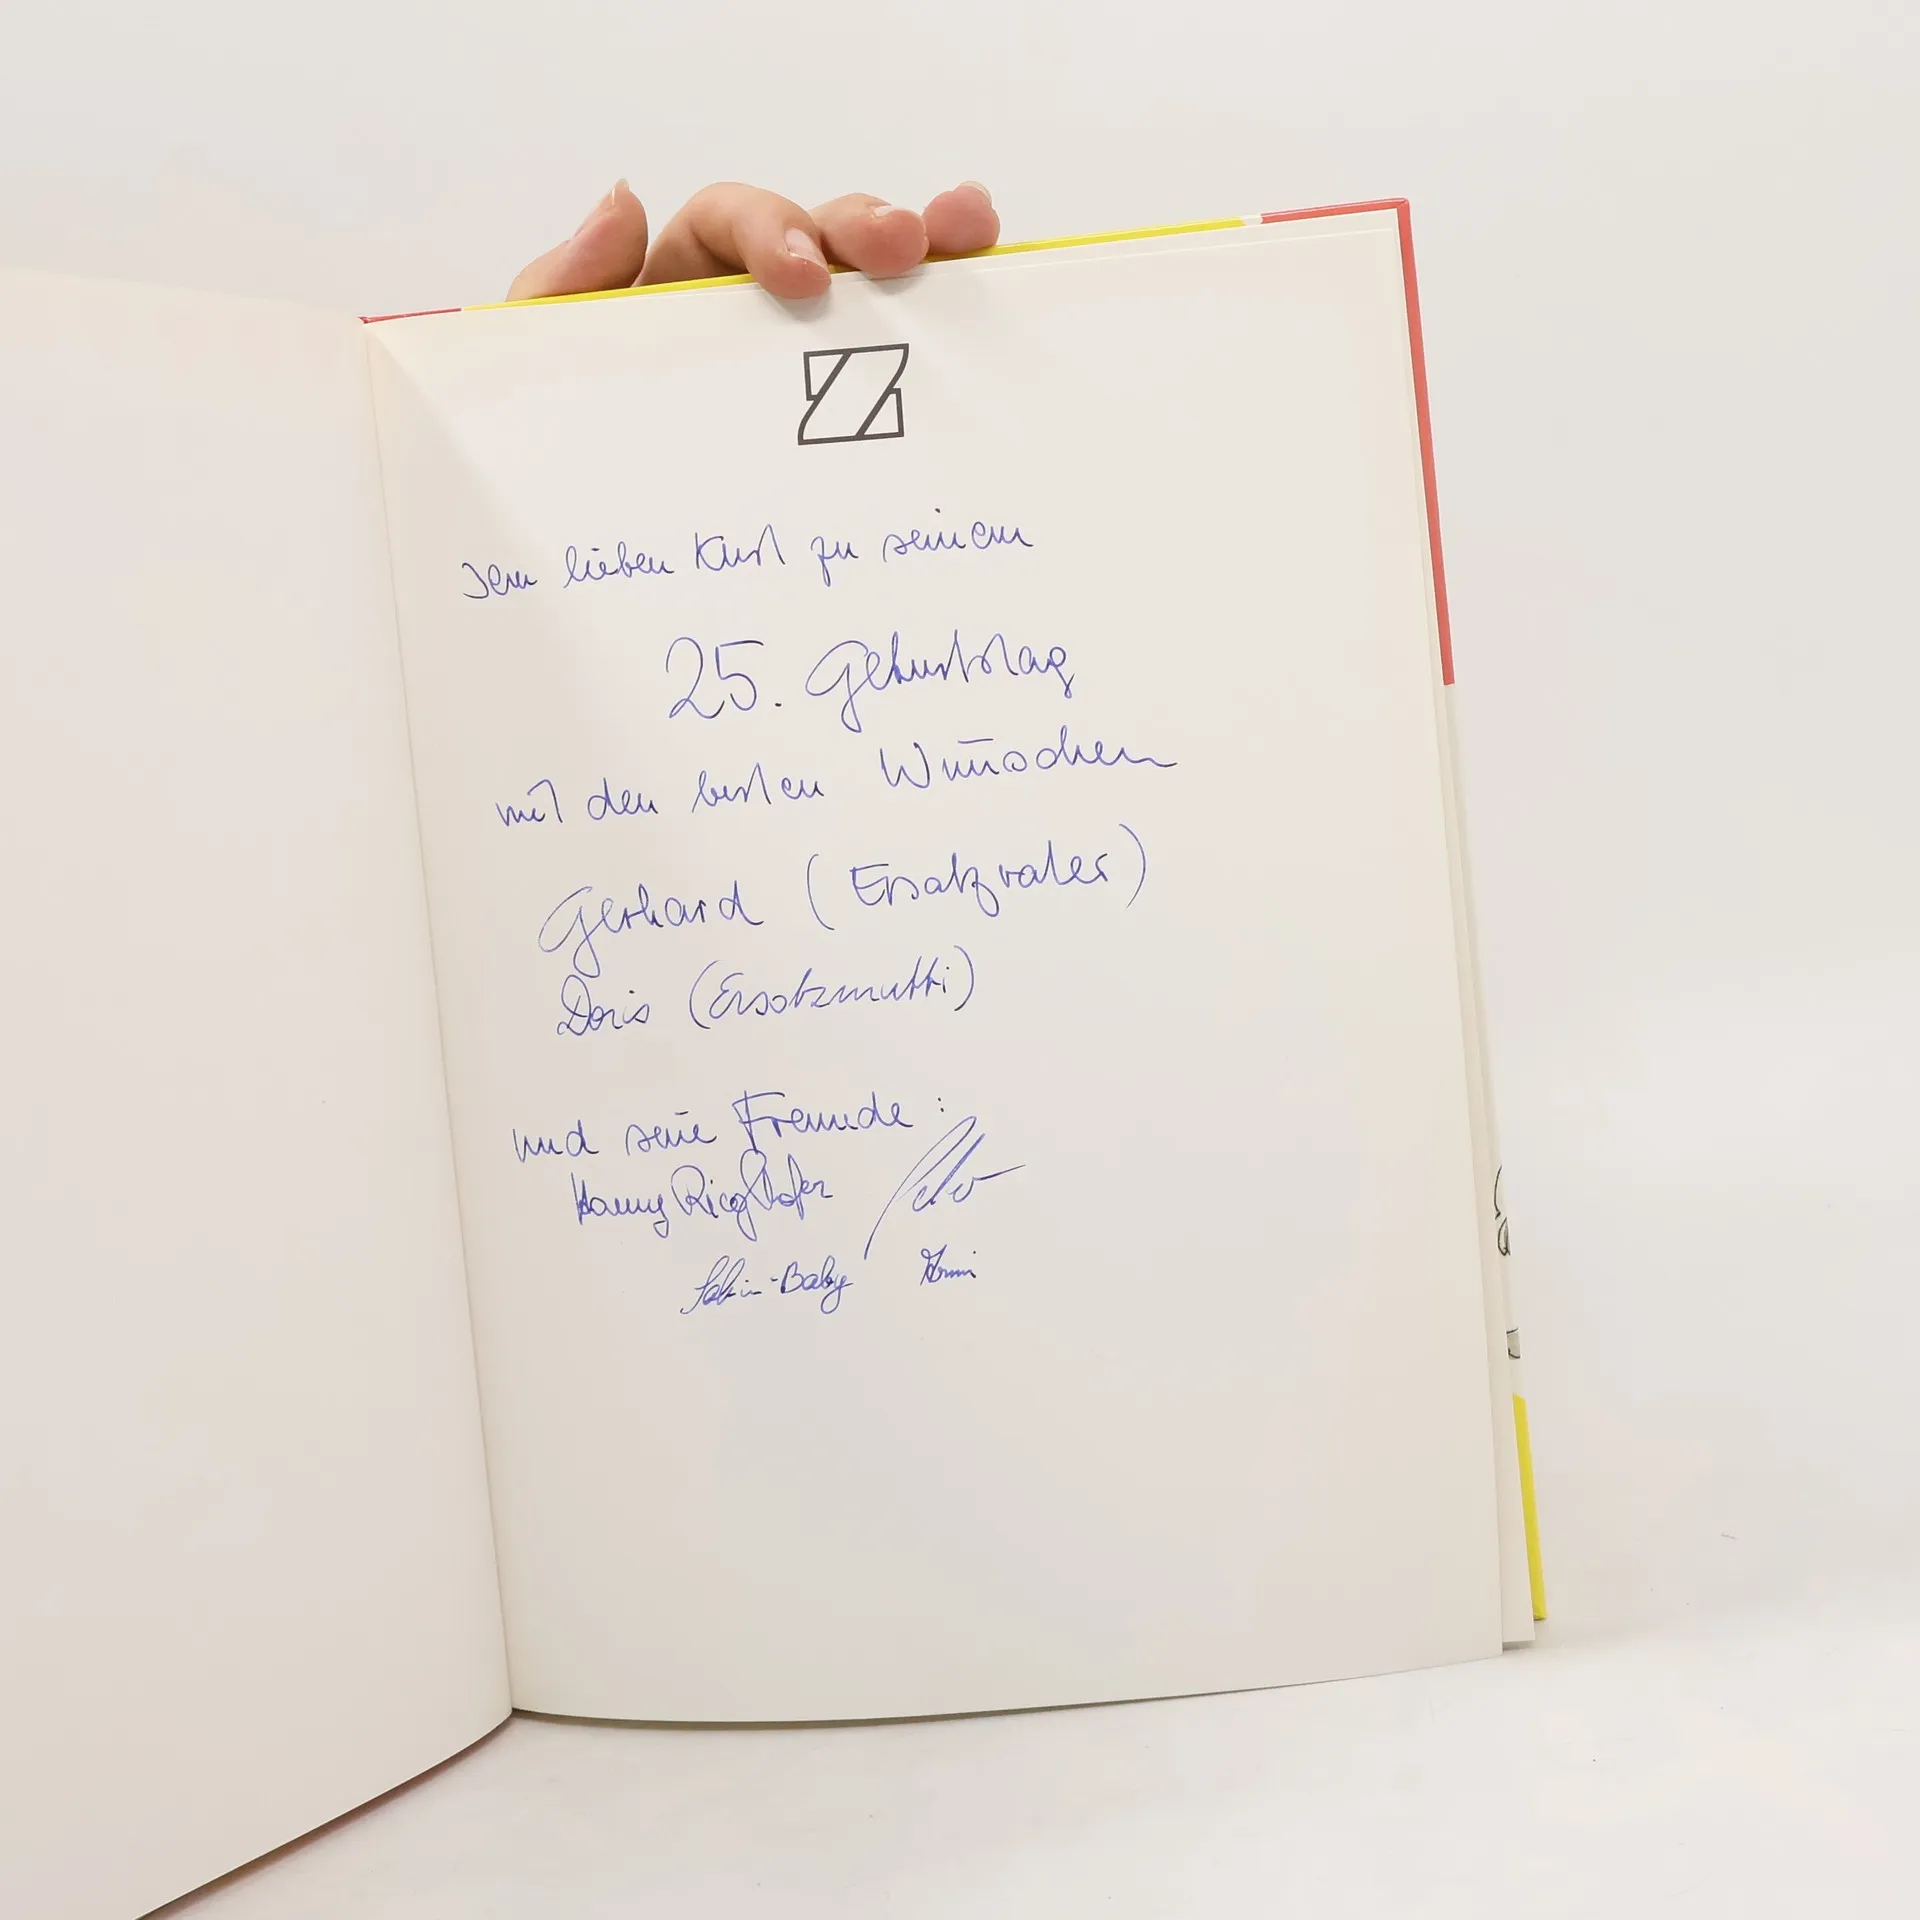 Z
Dem lieben Kurt zu seinem
25. Geburtstag
mit den besten Wünschen
Gerhard (Ersatzvater)
Doris (Ersatzmutti)
und seine Freunde:
Hanny Rieglhofer Peter
Sabin-Baby